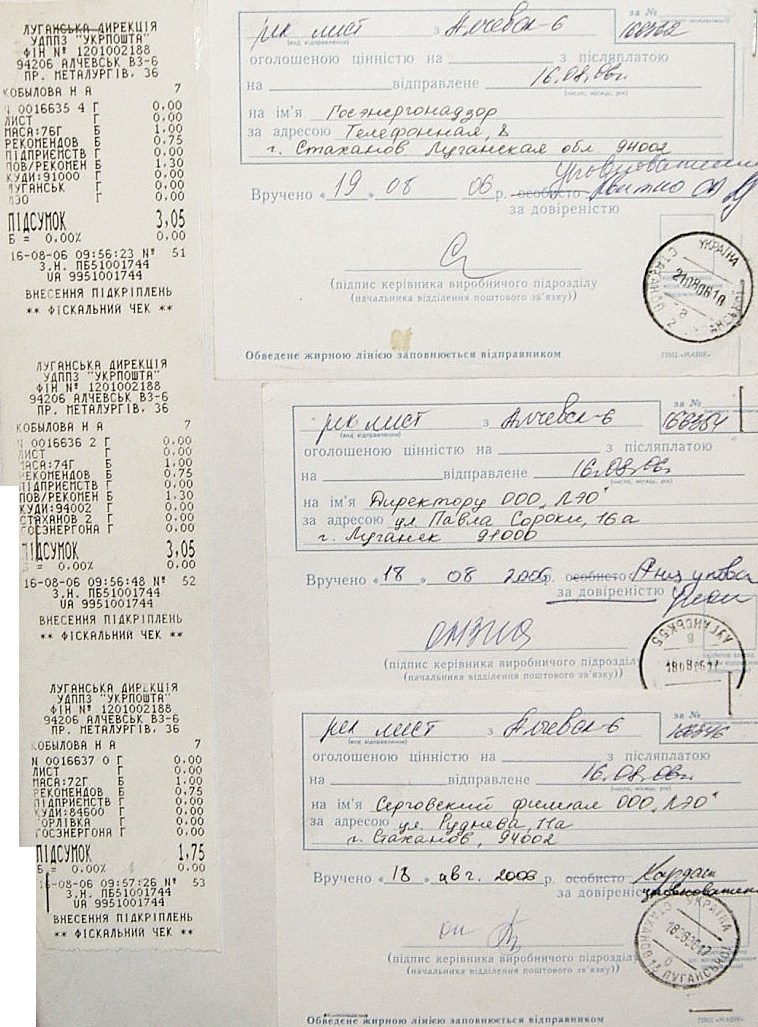 ЛУГАНСЬКА ДИРЕКЦІЯ
УДППЗ "УКРПОШТА"
ФІН № 1201002188
94206 АЛЧЕВСЬК ВЗ-6
ПР. МЕТАЛУРГІВ, 36
КОБЫЛОВА Н А 7
N 0016635 4 Г 0.00
ЛИСТ Г 0.00
МАСА:76Г Б 1.00
РЕКОМЕНДОВ Б 0.75
ПІДПРИЄМСТВ Г 0.00
ПОВ/РЕКОМЕН Б 1.30
КУДИ:91000 Г 0.00
ЛУГАНСЬК Г 0.00
ЛЭО Г 0.00
ПІДСУМОК 3,05
Б = 0.00% 0.00
16-08-06 09:56:23 № 51
З.Н. ПБ51001744
UA 9951001744
ВНЕСЕННЯ ПІДКРІПЛЕНЬ
** ФІСКАЛЬНИЙ ЧЕК **
ЛУГАНСЬКА ДИРЕКЦІЯ
УДППЗ "УКРПОШТА"
ФІН № 1201002188
94206 АЛЧЕВСЬК ВЗ-6
ПР. МЕТАЛУРГІВ, 36
КОБЫЛОВА Н А 7
N 0016636 2 Г 0.00
ЛИСТ Г 0.00
МАСА:74Г Б 1.00
РЕКОМЕНДОВ Б 0.75
ПІДПРИЄМСТВ Г 0.00
ПОВ/РЕКОМЕН Б 1.30
КУДИ:94002 Г 0.00
СТАХАНОВ 2 Г 0.00
ГОСЭНЕРГОНА Г 0.00
ПІДСУМОК 3,05
Б = 0.00% 0.00
16-08-06 09:56:48 № 52
З.Н. ПБ51001744
UA 9951001744
ВНЕСЕННЯ ПІДКРІПЛЕНЬ
** ФІСКАЛЬНИЙ ЧЕК **
ЛУГАНСЬКА ДИРЕКЦІЯ
УДППЗ "УКРПОШТА"
ФІН № 1201002188
94206 АЛЧЕВСЬК ВЗ-6
ПР. МЕТАЛУРГІВ, 36
КОБЫЛОВА Н А 7
N 0016637 0 Г 0.00
ЛИСТ Г 0.00
МАСА:72Г Б 1.00
РЕКОМЕНДОВ Б 0.75
ПІДПРИЄМСТВ Г 0.00
КУДИ:84600 Г 0.00
ГОРЛІВКА Г 0.00
ГОСЭНЕРГОНА Г 0.00
ПІДСУМОК 1,75
Б = 0.00% 0.00
16-08-06 09:57:26 № 53
З.Н. ПБ51001744
UA 9951001744
ВНЕСЕННЯ ПІДКРІПЛЕНЬ
** ФІСКАЛЬНИЙ ЧЕК **
за №
рек лист з Алчевск-6
(вид відправлення)
оголошеною цінністю на з післяплатою
на відправлене 16.08.06г.
(число, місяць, рік)
на ім'я Госэнергонадзор
за адресою Телефонная, 8
г. Стаханов Луганская обл 94002
Вручено «19» 08 06 р. особисто
за довіреністю
(підпис керівника виробничого підрозділу
(начальника відділення поштового зв'язку))
УКРАЇНА
СТАХАНОВ 2
210806 18
Обведене жирною лінією заповнюється відправником
за №
рек лист з Алчевск-6 166354
(вид відправлення)
оголошеною цінністю на з післяплатою
на відправлене 16.08.06г.
(число, місяць, рік)
на ім'я Директору ООО „ЛЭО"
за адресою ул. Павла Сороки, 16а
г. Луганск 91000
Вручено «18» 08 2006 особисто
за довіреністю
(підпис керівника виробничого підрозділу
(начальника відділення поштового зв'язку))
ЛУГАНСЬК55
180806 17
за №
рек лист з Алчевск-6
(вид відправлення)
оголошеною цінністю на з післяплатою
на відправлене 16.08.06г.
(число, місяць, рік)
на ім'я Серговский филиал ООО „ЛЭО"
за адресою ул. Руднева, 11а
г. Стаханов, 94002
Вручено «18» авг. 2006 р. особисто Кардаш
за довіреністю
(підпис керівника виробничого підрозділу
(начальника відділення поштового зв'язку))
УКРАЇНА
СТАХАНОВ
ЛУГАНСЬКОЇ
180806 17
Обведене жирною лінією заповнюється відправником